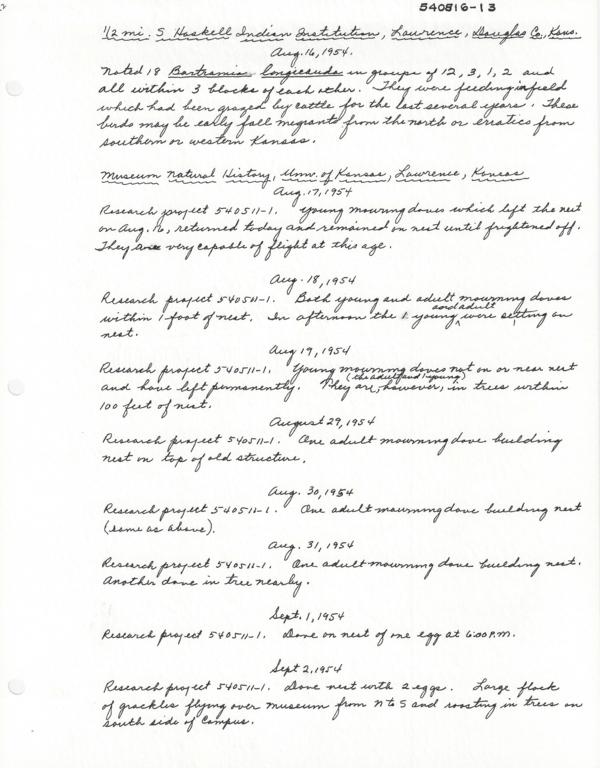 540816-13
1/2 mi. S Haskell Indian Institution, Lawrence, Douglas Co., Kans.
Aug. 16, 1954.
Noted 18 Bartramia longicauda in groups of 12, 3, 1, 2 and
all within 3 blocks of each other. They were feeding in field
which had been grazed by cattle for the last several years. These
birds may be early fall migrants from the north or erratics from
southern or western Kansas.
Museum Natural History, Univ. of Kansas, Lawrence, Kansas
Aug. 17, 1954
Research project 540511-1. Young mourning doves which left the nest
on Aug. 16, returned today and remained on nest until frightened off.
They are very capable of flight at this age.
Aug. 18, 1954
Research project 540511-1. Both young and adult mourning doves
within 1 foot of nest. In afternoon the 1 young and adult were setting on
nest.
Aug 19, 1954
Research project 540511-1. Young mourning doves not on or near nest
and have left permanently. They are (the adult and 1 young), however, in trees within
100 feet of nest.
August 29, 1954
Research project 540511-1. One adult mourning dove building
nest on top of old structure.
Aug. 30, 1954
Research project 540511-1. One adult mourning dove building nest
(same as above).
Aug. 31, 1954
Research project 540511-1. One adult mourning dove building nest.
Another dove in tree nearby.
Sept. 1, 1954
Research project 540511-1. Dove on nest of one egg at 6:00 P.M.
Sept 2, 1954
Research project 540511-1. Dove nest with 2 eggs. Large flock
of grackles flying over museum from N to S and roosting in trees on
south side of Campus.